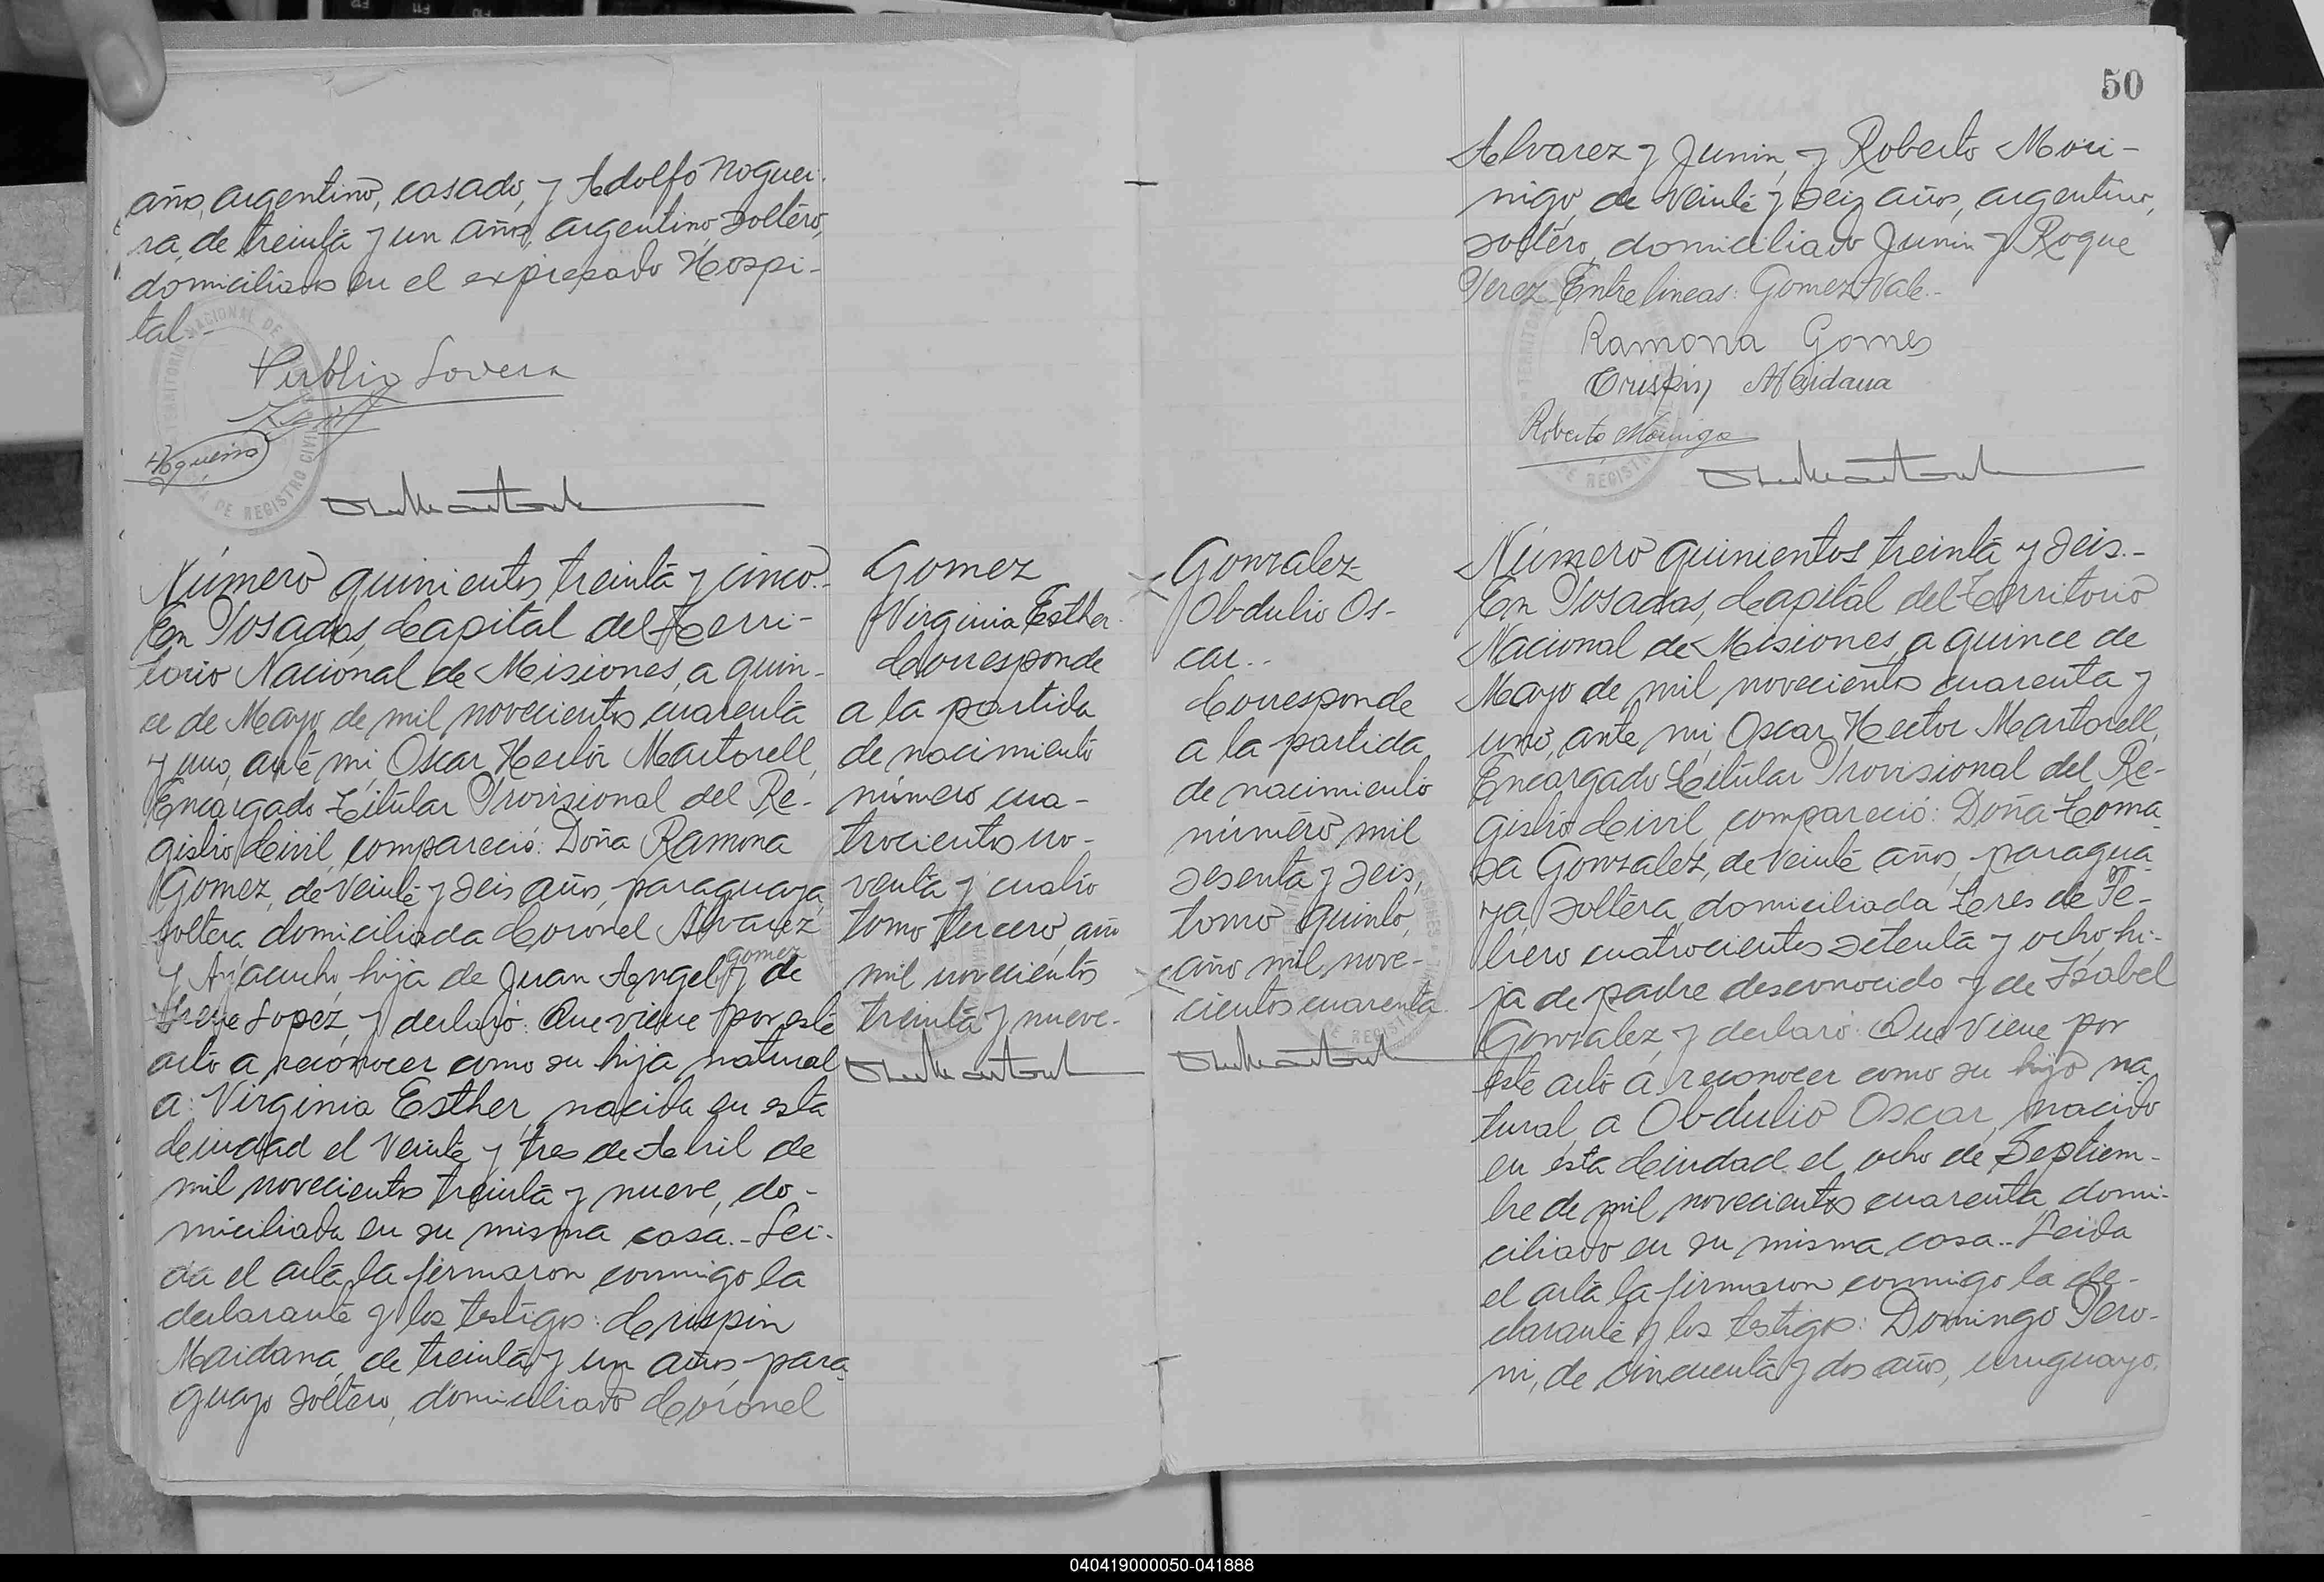 año, argentino, casado, y Adolfo Noguei-
ra, de treinta y un años, argentino, soltero,
domiciliados en el expresado Hospi-
tal.-
Publio Lovera
Nogueira
Número quinientos treinta y cinco.-
En Posadas, Capital del Terri-
torio Nacional de Misiones, a quin-
ce de Mayo de mil novecientos cuarenta
y uno, ante mi, Oscar Hector Martorell,
Encargado Titular Provisional del Re-
gistro Civil, compareció: Doña Ramona
Gomez, de veinte y seis años, paraguaya,
soltera, domiciliada Coronel Alvarez
gomez
y Ayacucho, hija de Juan Angel y de
Lopez, y declaró: Que viene por este
acto a reconocer como su hija natural
a: Virginia Esther, nacida en esta
Ciudad el veinte y tres de Abril de
mil novecientos treinta y nueve, do-
miciliada en su misma casa.- Lei-
da el acta, la firmaron conmigo la
declarante y los testigos: Crispin
Maidana, de treinta y un años, para-
guayo, soltero, domiciliado Coronel
Gomez
Virginia Esther.
Corresponde
a la partida
de nacimiento
número cua-
trocientos no-
venta y cuatro
tomo tercero, año
mil novecientos
treinta y nueve.-
Gonzalez
Obdulio Os-
car..
Corresponde
a la partida
de nacimiento
número mil
sesenta y seis,
tomo quinto,
año mil nove-
cientos cuarenta.
50
Alvarez y Junin, y Roberto Mori-
nigo, de veinte y seis años, argentino,
soltero, domiciliado Junin y Roque
Perez. Entre lineas: Gomez. Vale.-
Ramona Gomes
Crispin Maidana
Roberto Morinigo
Número quinientos treinta y seis.-
En Posadas, Capital del Territorio
Nacional de Misiones, a quince de
Mayo de mil novecientos cuarenta y
uno, ante mi, Oscar Hector Martorell,
Encargado Titular Provisional del Re-
gistro Civil, compareció: Doña Toma-
sa Gonzalez, de veinte años, paragua-
ya, soltera, domiciliada Tres de Fe-
brero cuatrocientos setenta y ocho, hi-
ja de padre desconocido y de Isabel
Gonzalez, y declaró: Que viene por
este acto a reconocer como su hijo na-
tural a Obdulio Oscar, nacido
en esta Ciudad el ocho de Septiem-
bre de mil novecientos cuarenta, domi-
ciliado en su misma casa.- Leida
el acta la firmaron conmigo la de-
clarante y los testigos: Domingo Pero-
ni, de cincuenta y dos años, uruguayo,
040419000050-041888